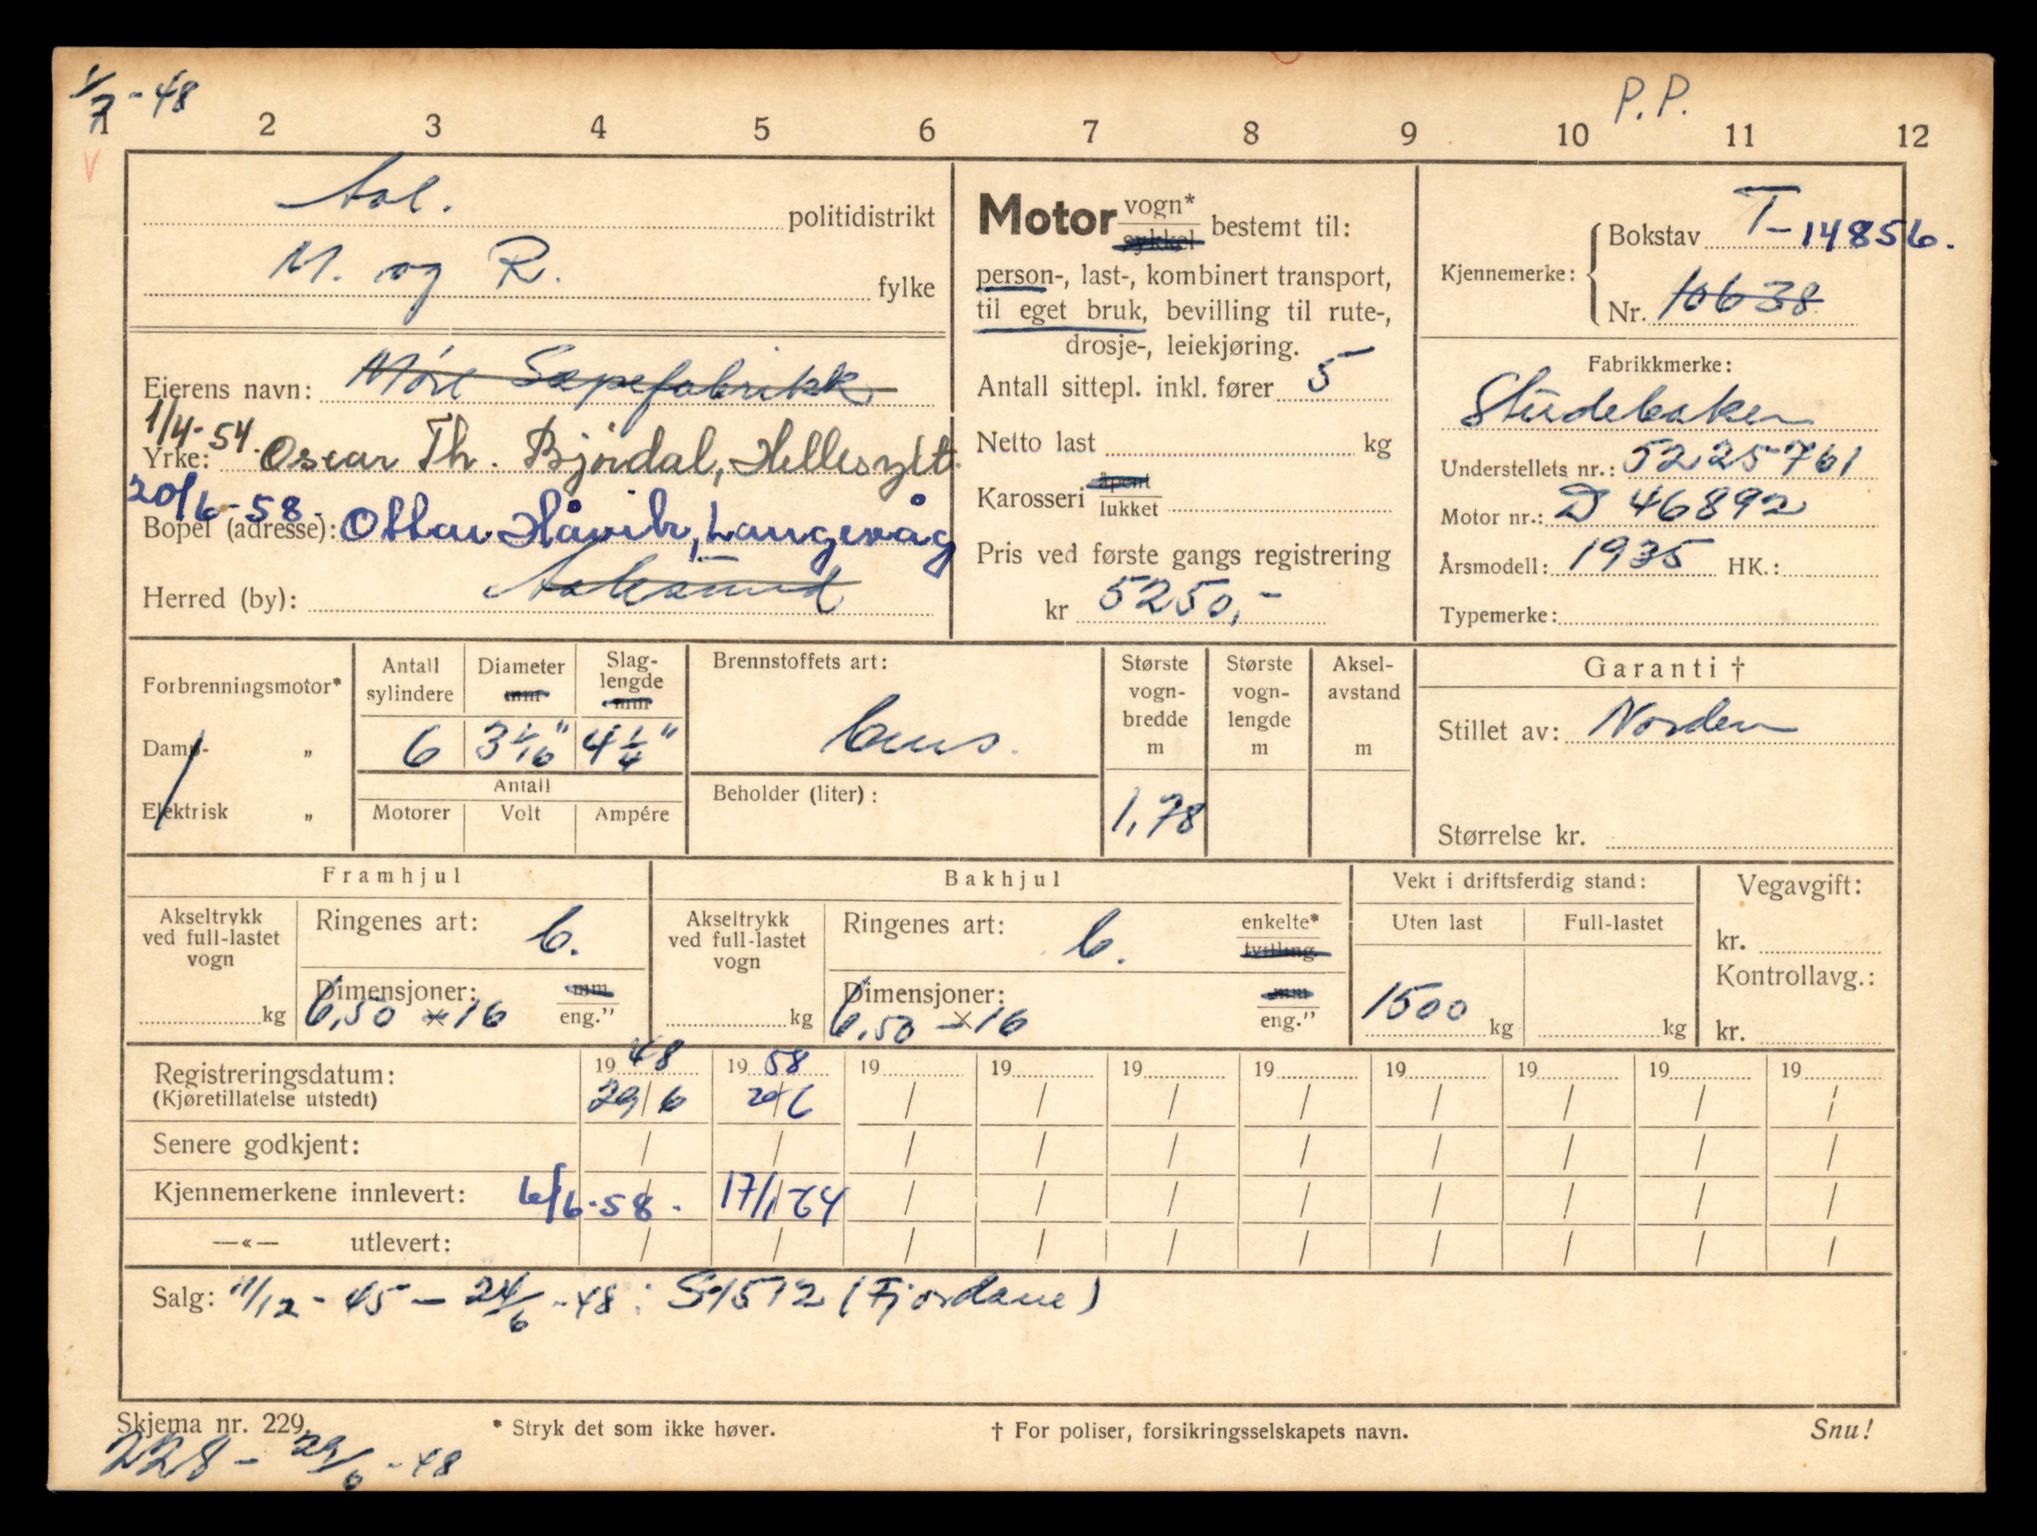 1/7 - 48
P.P.
1 2 3 4 5 6 7 8 9 10 11 12
V
Aal. politidistrikt
M. og R. fylke
Eierens navn: Møre Sæpefabrikk
1/4-54.
Yrke: Oscar Th. Bjørdal, Hellesylt.
20/6-58.
Bopel (adresse): Ottar Håvik, Langevåg
Herred (by): Aalesund
Motor vogn* sykkel bestemt til:
person-, last-, kombinert transport,
til eget bruk, bevilling til rute-,
drosje-, leiekjøring.
Antall sittepl. inkl. fører 5
Netto last kg
Karosseri åpent lukket
Pris ved første gangs registrering
kr 5250,-
Kjennemerke: Bokstav T-14856.
Nr. 10638
Fabrikkmerke:
Studebaker
Understellets nr.: 5225761
Motor nr.: D 46892
Årsmodell: 1935 HK.:
Typemerke:
Forbrenningsmotor*
Damp- „
Elektrisk „
Antall sylindere
Diameter mm
Slag-lengde mm
6 3 1/16" 4 1/4"
Antall
Motorer Volt Ampére
Brennstoffets art:
Beholder (liter):
Største vogn-bredde m
Største vogn-lengde m
Aksel-avstand m
1,78
Garanti †
Stillet av: Norden
Størrelse kr.
Framhjul
Akseltrykk ved full-lastet vogn
kg
Ringenes art: b.
Dimensjoner: mm eng."
6,50 x 16
Bakhjul
Akseltrykk ved full-lastet vogn
kg
Ringenes art: b. enkelte* tvilling.
Dimensjoner: mm eng."
6,50 x 16
Vekt i driftsferdig stand:
Uten last Full-lastet
1500 kg kg
Vegavgift:
kr.
Kontrollavg.:
kr.
Registreringsdatum: 1948 1958 19 19 19 19 19 19 19 19
(Kjøretillatelse utstedt) 29/6 20/6 / / / / / / / /
Senere godkjent: / / / / / / / / / /
Kjennemerkene innlevert: 6/6-58. 17/1 64 / / / / / / / /
—«— utlevert: / / / / / / / / / /
Salg: 11/12 - 45 — 24/6 - 48: S-1512 (Fjordane)
Skjema nr. 229. * Stryk det som ikke høver. † For poliser, forsikringsselskapets navn. Snu!
228 - 29/6 - 48